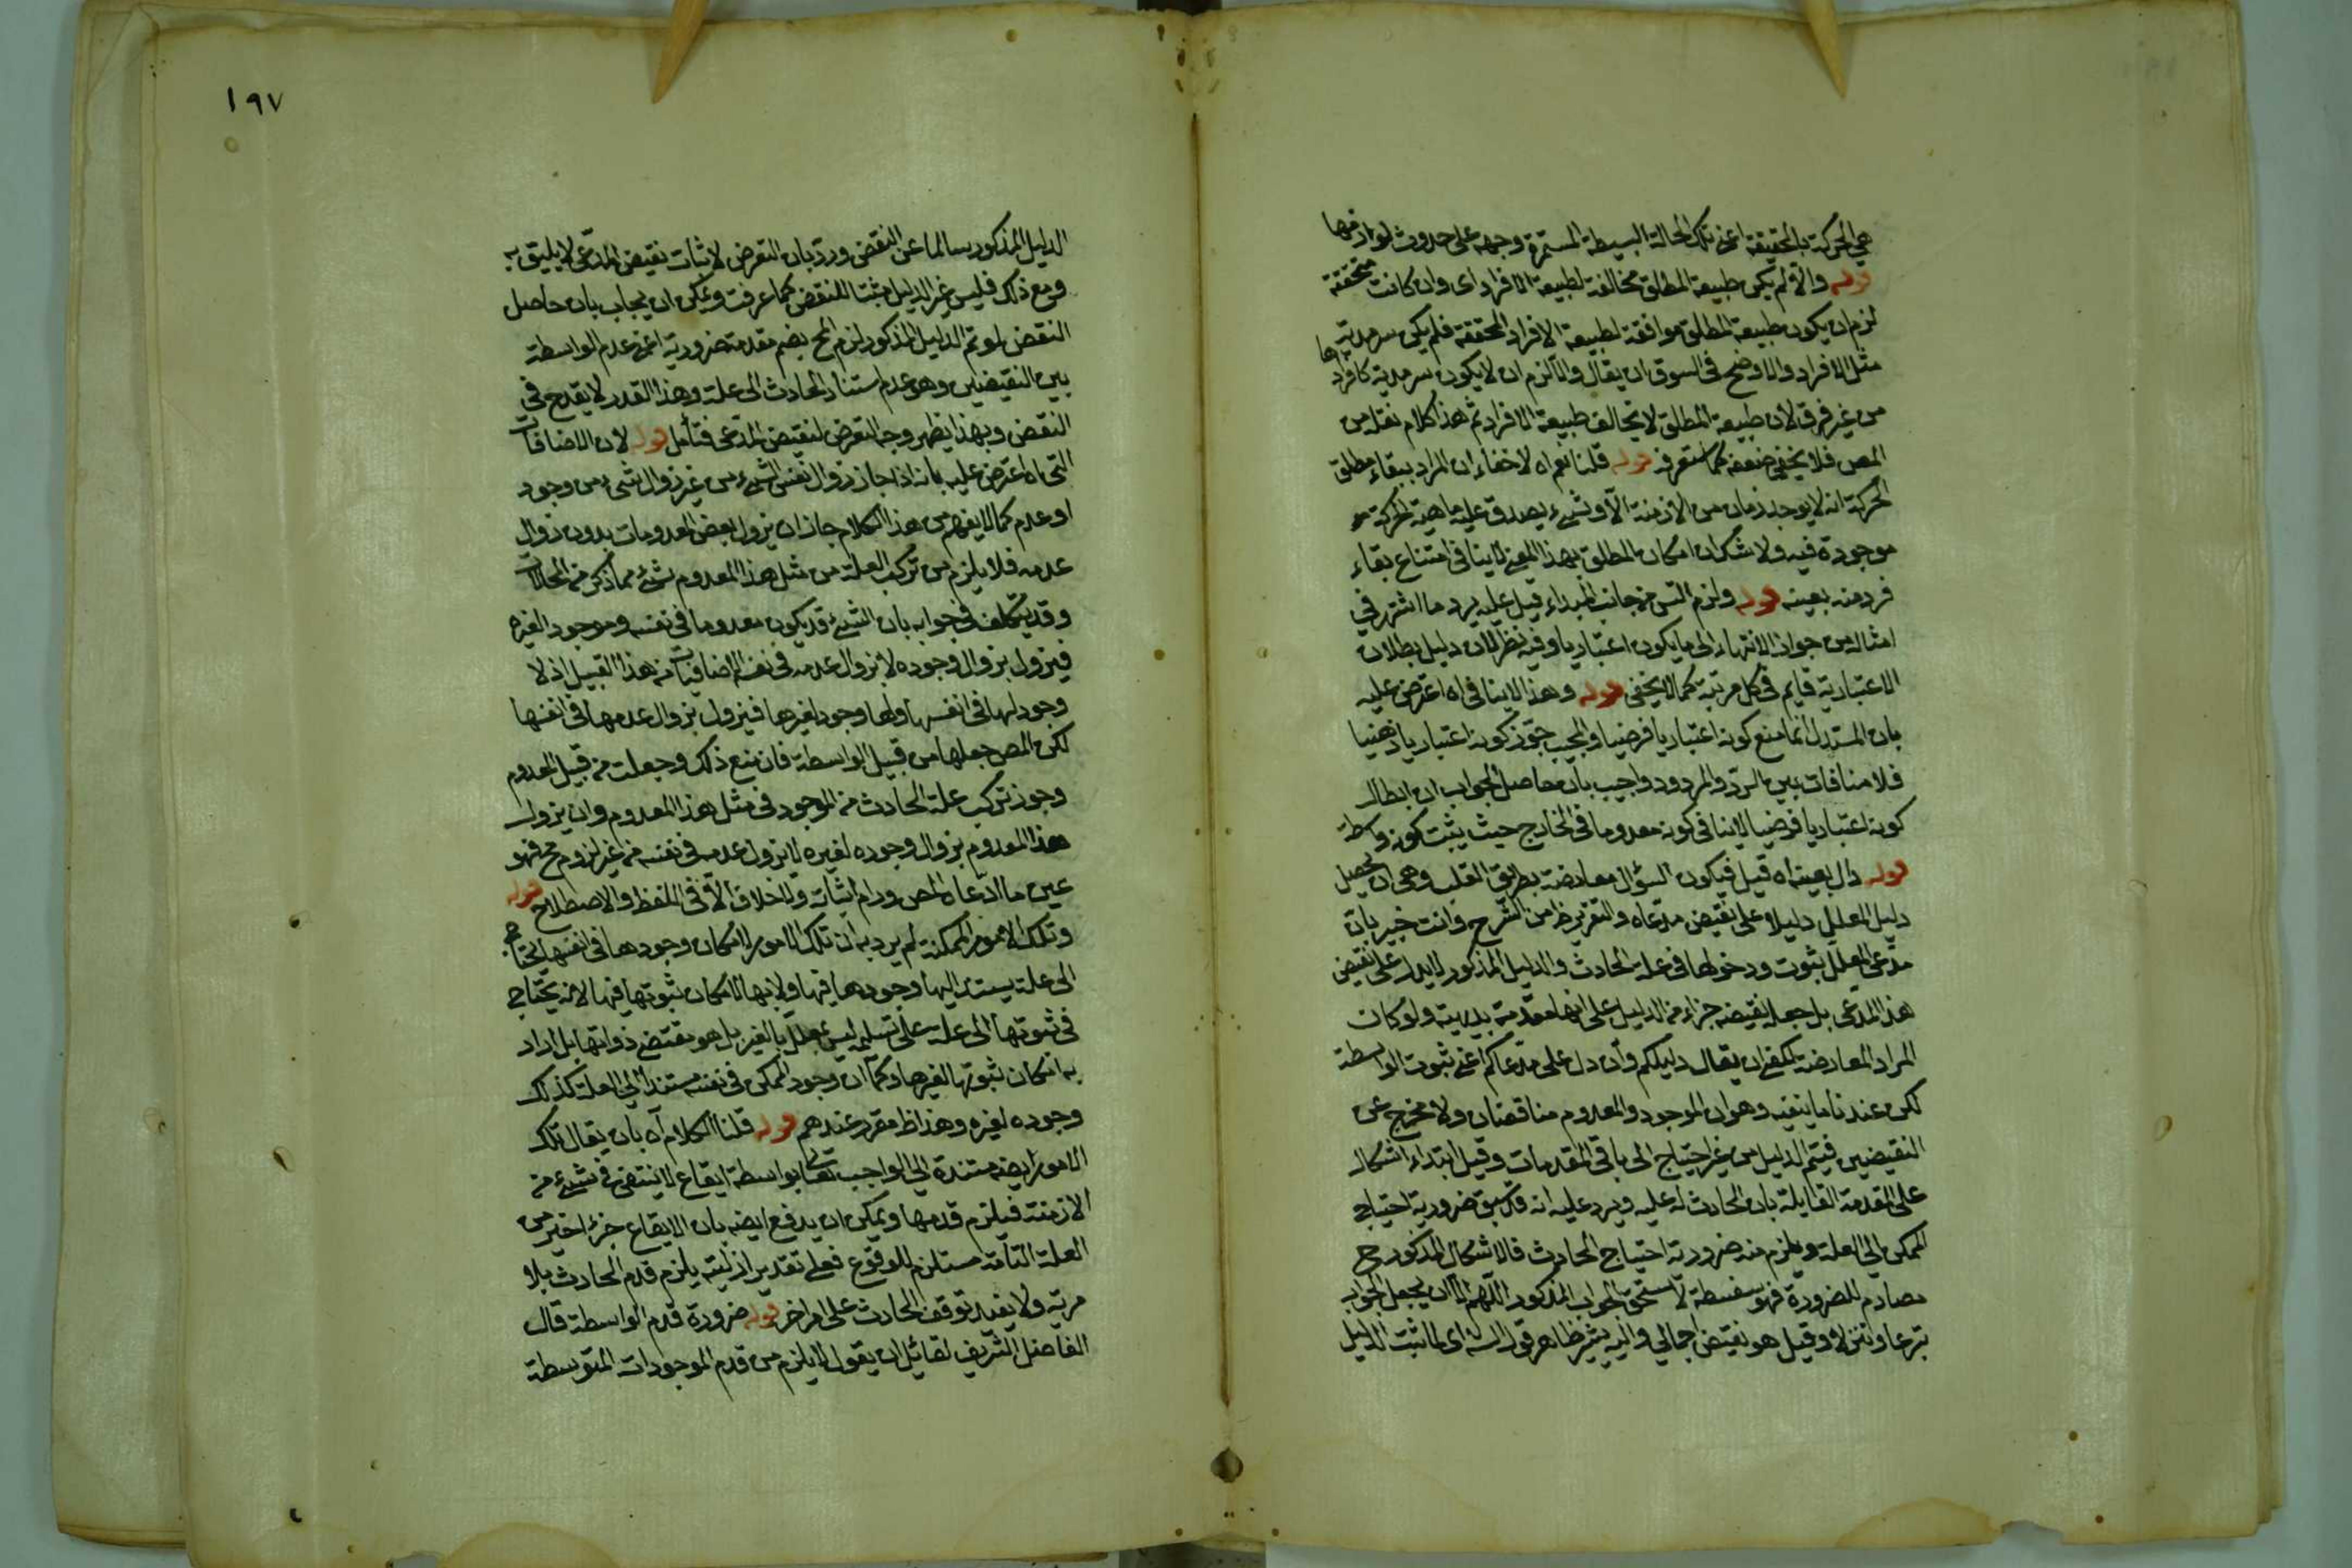 هي الحركة بالحقيقة اعني تلك الحالة البسيطة المستمرة وجهه على حدوث لوازمها
قوله والا لم يكن طبيعة المطلق مخالفة لطبيعة الافراد اى وان كانت متحققة
لزم ان يكون طبيعة المطلق موافقة لطبيعة الافراد المحققة فلم يكن سرمدية
مثل الافراد والاوضح فى السوق ان يقال والا لزم ان لا يكون سرمدية كافرادها
من غير فرق لان طبيعة المطلق لا تخالف طبيعة الافراد ثم هذا كلام نقله من
المص فلا يخفى ضعفه كما ستعرفه قوله قلنا نعم اه لا خفاء ان المراد ببقاء مطلق
الحركة انه لا يوجد زمان من الازمنة الا وشىء يصدق عليه ماهية الحركة
موجودة فيه ولا شك ان امكان المطلق بهذا المعنى لا ينافى امتناع بقاء
فرد منه بعينه قوله ولزم التس من جانب المبداء قيل عليه يرد ما اشتهر فى
امثاله من جواز الانتهاء الى ما يكون اعتباريا وفيه نظر لان دليل بطلان
الاعتبارية قايم فى كل مرتبة كما لا يخفى قوله وهذا لا ينافى اه اعترض عليه
بان المستدل انما منع كونه اعتباريا فرضيا والمجيب جوز كونه اعتباريا ذهنيا
فلا منافات بين الرد والمردود واجيب بان حاصل الجواب ان ابطال
كونه اعتباريا فرضيا لا ينافى كونه معدوما فى الخارج حيث يثبت كونه واسطة
قوله دال بعينه اه قيل فيكون السؤال معارضة بطريق القلب وهى ان يجعل
دليل المعلل دليلا على نقيض مدعاه والتقرير ظ من الشرح وانت خبير بان
مدعى المعلل ثبوت ودخولها فى علة الحادث والدليل المذكور لا يدل على نقيض
هذا المدعى بل جعل نقيضه جزاء من الدليل على انها مقدمة بديهية ولو كان
المراد المعارضة لكفى ان يقال دليلكم وان دل على مدعاكم اعنى ثبوت الواسطة
لكن عندنا ما ينفيه وهو ان الموجود والمعدوم متناقضان ولا مخرج عن
النقيضين فيتم الدليل من غير احتياج الى باقى المقدمات وقيل ابتداء اشكال
على المقدمة القايلة بان الحادث له علية ويرد عليه انه قد سبق ضرورية احتياج
الممكن الى العلة ويلزم منه ضرورية احتياج الحادث فالاشكال المذكور ح
مصادم للضرورة فهو سفسطة لا تستحق الجواب المذكور اللهم الا ان يجعل الجواب
تبرعا وتنزلا وقيل هو نقيض اجمالى واليه يشير ظاهر قول الش اى لما ثبت الدليل
١٩٧
الدليل المذكور سالما عن النقض ورد بان التعرض لاثبات نقيض المدعى لا يليق به
ومع ذلك فليس غير الدليل مثبتا للنقض كما عرفت ويمكن ان يجاب بان حاصل
النقض لو تم الدليل المذكور لزم المح بضم مقدمة ضرورية اعنى عدم الواسطة
بين النقيضين وهو عدم استناد الحادث الى علة وهذا القدر لا يقدح فى
النقض وبهذا يظهر وجه التعرض لنقيض المدعى فتأمل قوله لان الاضافات
التى اه اعترض عليه بانه اذا جاز زوال نفس الشىء من غير زوال شىء من وجود
او عدم كما لا يفهم من هذا الكلام جاز ان يزول بعض المعدومات بدون زوال
عدمه فلا يلزم من تركب العلة من مثل هذا المعدوم شىء مما ذكر من المحالات
وقد يتكلف فى جوابه بان الشىء قد يكون معدوما فى نفسه وموجودا لغيره
فيزول بزوال وجوده لا بزوال عدمه فى نفسه الاضافيات من هذا القبيل اذ لا
وجود لها فى انفسها ولها وجود لغيرها فيزول بزوال عدمها فى انفسها
لكن المص جعلها من قبيل الواسطة فان منع ذلك وجعلت من قبيل المعدوم
وجوز تركب علة الحادث من الموجود فى مثل هذا المعدوم وان يزول
هذا المعدوم بزوال وجوده لغيره لا بزول عدمه فى نفسه من غير لزوم مح فهو
عين ما ادعاه المص ورام اثباته ولا خلاف الا فى اللفظ والاصطلاح قوله
وتلك الامور الممكنة لم يرد به ان تلك الامور لامكان وجودها فى انفسها محتاجة
الى علة يستند اليها وجودها فيها ولا بها لامكان ثبوتها فيها لانه يحتاج
فى ثبوتها الى علة على تسليمه ليس يعلل بالغير بل هو مقتضى ذواتها بل اراد
به امكان ثبوتها لغيرها وكما ان وجود الممكن فى نفسه مستندا الى العلة كذلك
وجوده لغيره وهذا ظ مقرر عندهم قوله قلنا الكلام اه بان يقال تلك
الامور ايضه مستندة الى الواجب تعالى بواسطة ايقاع لا ينتقى فى شىء من
الازمنة فيلزم قدمها ويمكن ان يدفع ايضه بان الايقاع جزء اخير من
العلة التامة مستلزم للوقوع فعلى تقدير ازليته يلزم قدم الحادث بلا
مرية ولا يفيد توقف الحادث على امر اخر قوله ضرورة قدم الواسطة قال
الفاضل الشريف لقائل ان يقول لا يلزم من قدم الموجودات المتوسطة